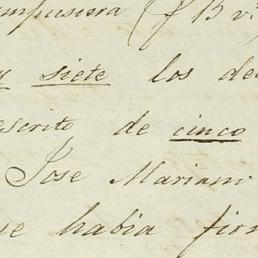 impusiera (f 13 v.
y siete los de
escrito de cinco
Jose Mariano
ue habia firm